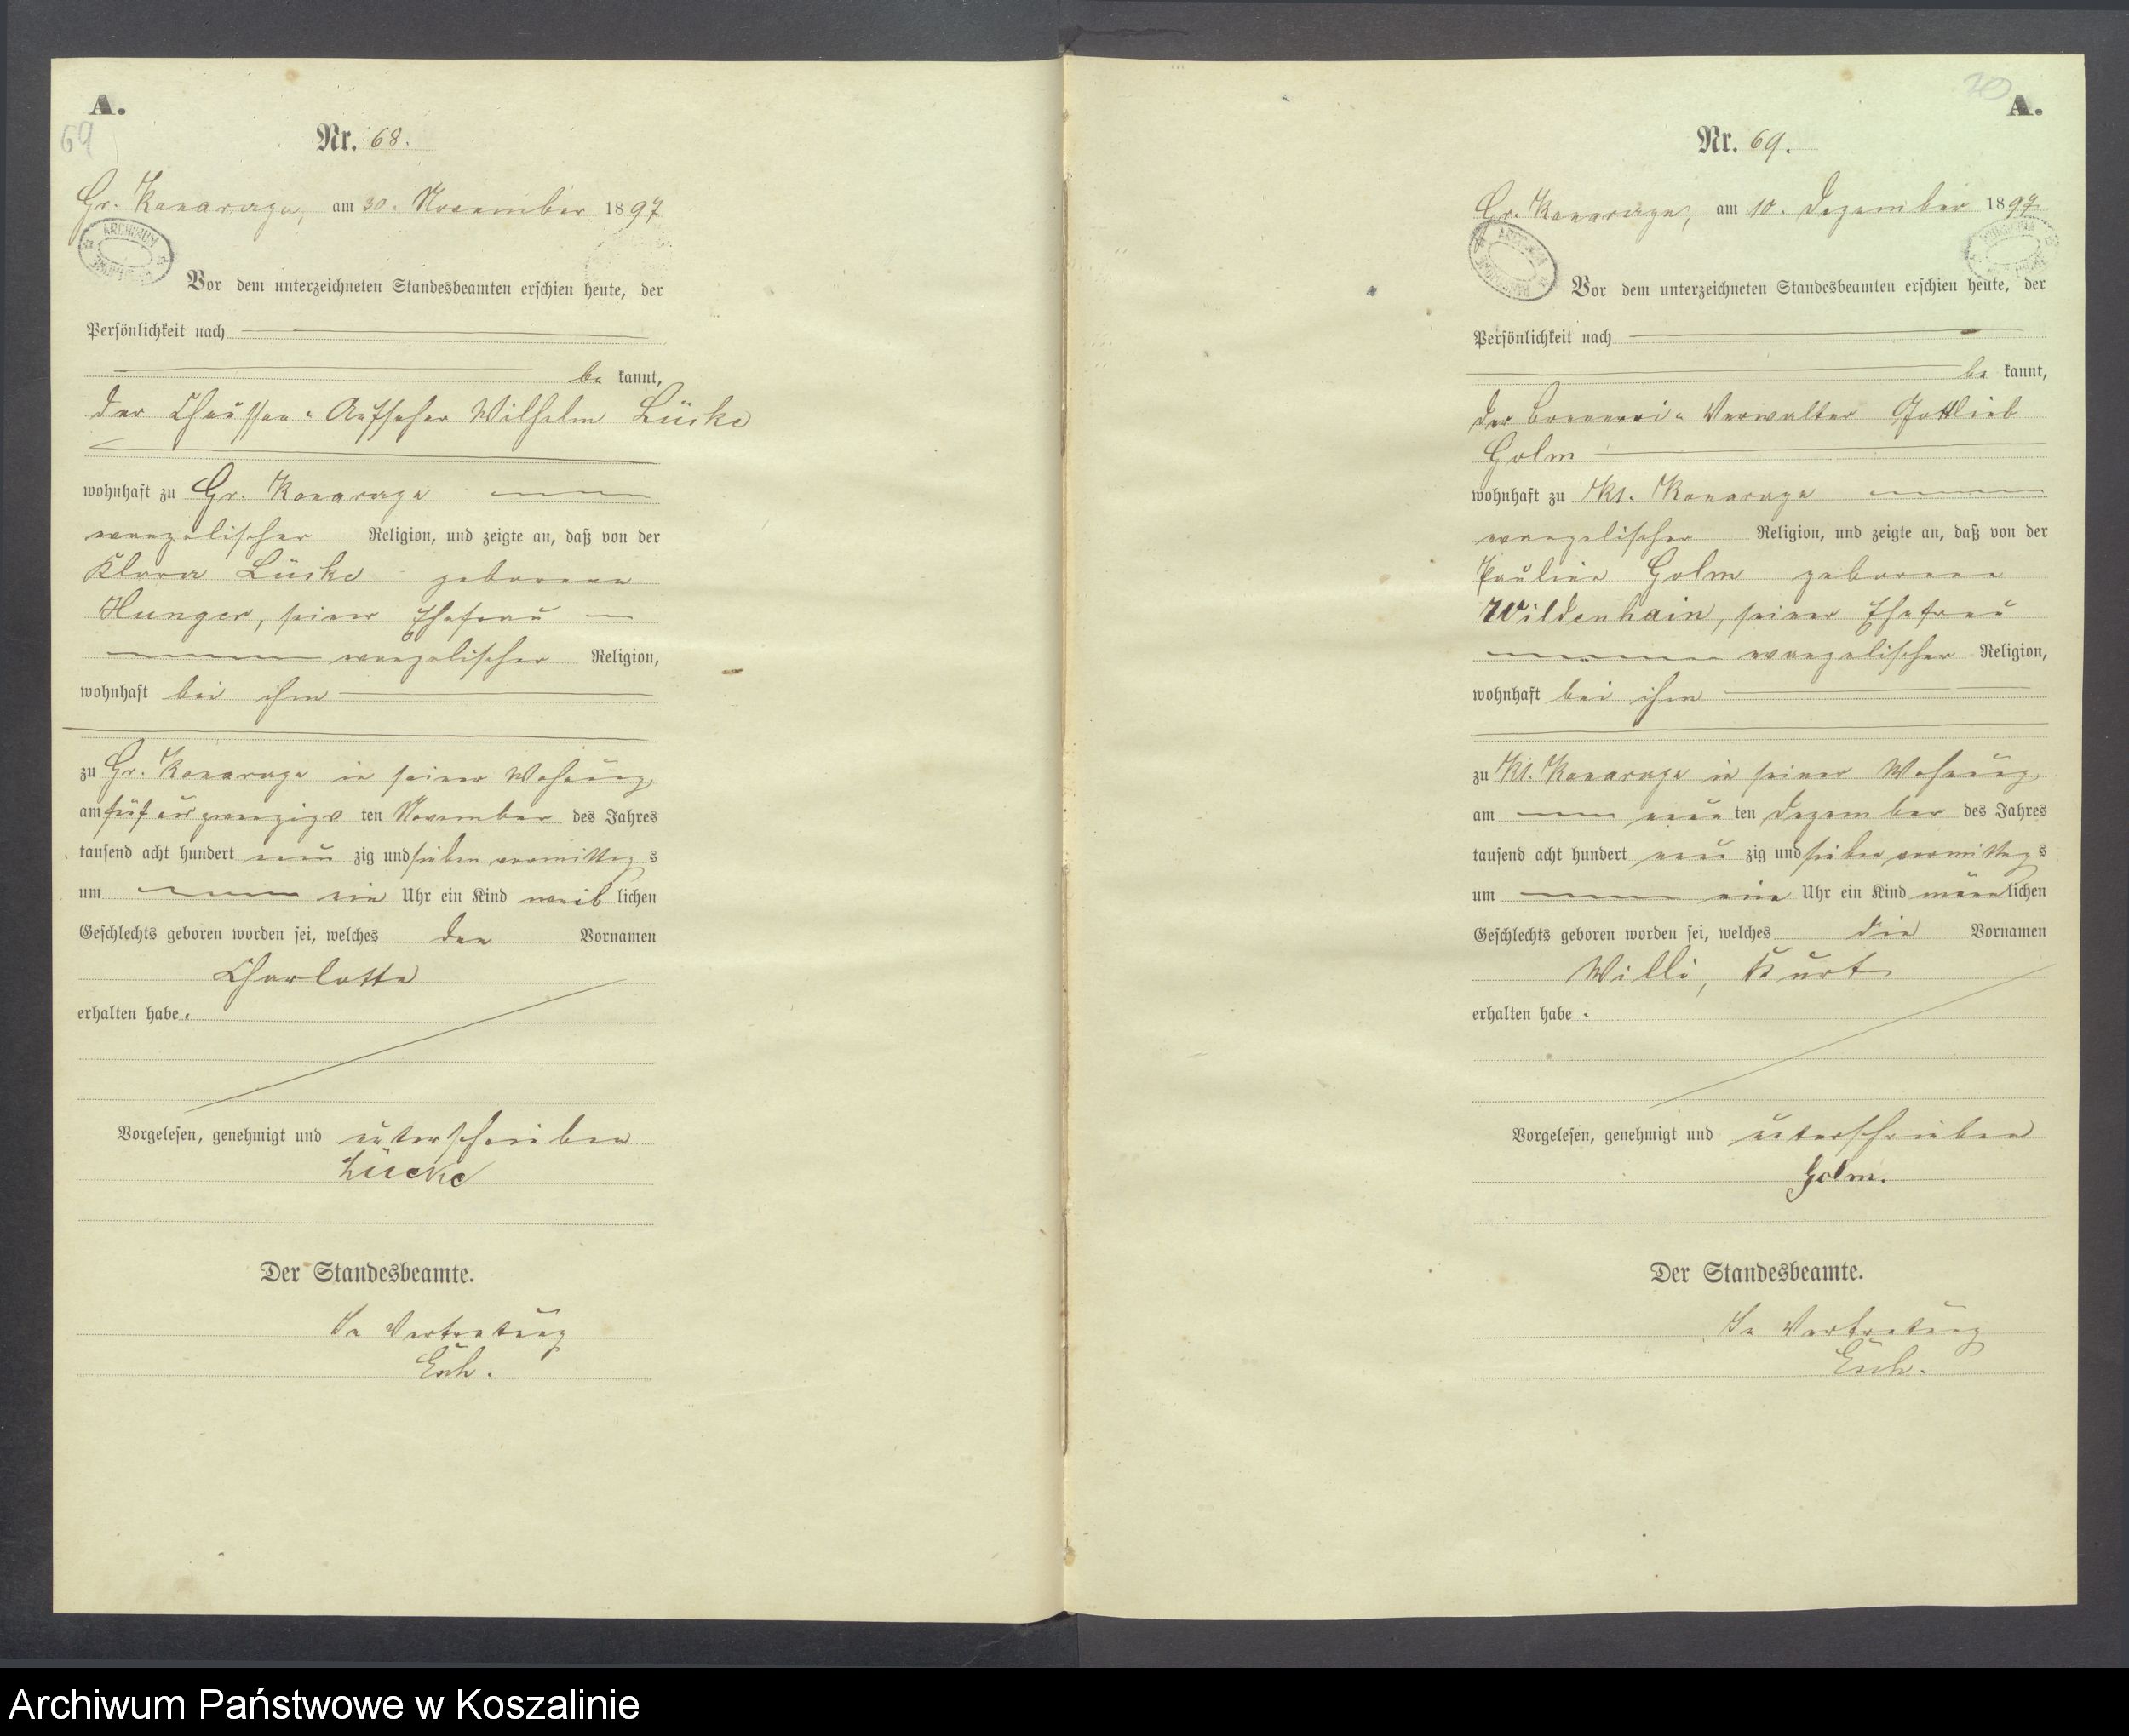 A.
69
Nr. 68.
Gr. Konarczyn, am 30. November 1897
ARCHIWUM
Vor dem unterzeichneten Standesbeamten erschien heute, der
Persönlichkeit nach
be kannt,
der Chaussee-Aufseher Wilhelm Lücke
wohnhaft zu Gr.
evangelischer Religion, und zeigte an, daß von der
Klara Lücke geborene
Hunger, seiner Ehefrau
evangelischer Religion,
wohnhaft bei ihm
zu Gr. in seiner Wohnung
am fünf und zwanzigs ten November des Jahres
tausend acht hundert neun zig und sieben vormittag s
um ein Uhr ein Kind weib lichen
Geschlechts geboren worden sei, welches den Vornamen
Charlotte
erhalten habe.
Vorgelesen, genehmigt und unterschrieben
Lücke
Der Standesbeamte.
In Vertretung
A.
70
Nr. 69.
Gr. am 10. Dezember 1897
ARCHIWUM
Vor dem unterzeichneten Standesbeamten erschien heute, der
Persönlichkeit nach
be kannt,
der Brennerei-Verwalter Gottlieb
Golm
wohnhaft zu Kl.
evangelischer Religion, und zeigte an, daß von der
Pauline Golm geborene
Wildenhain, seiner Ehefrau
evangelischer Religion,
wohnhaft bei ihm
zu Kl. in seiner Wohnung
am neun ten Dezember des Jahres
tausend acht hundert neun zig und sieben vormittag s
um ein Uhr ein Kind männ lichen
Geschlechts geboren worden sei, welches die Vornamen
Willi, Kurt
erhalten habe.
Vorgelesen, genehmigt und unterschrieben
Golm.
Der Standesbeamte.
In Vertretung
Archiwum Państwowe w Koszalinie